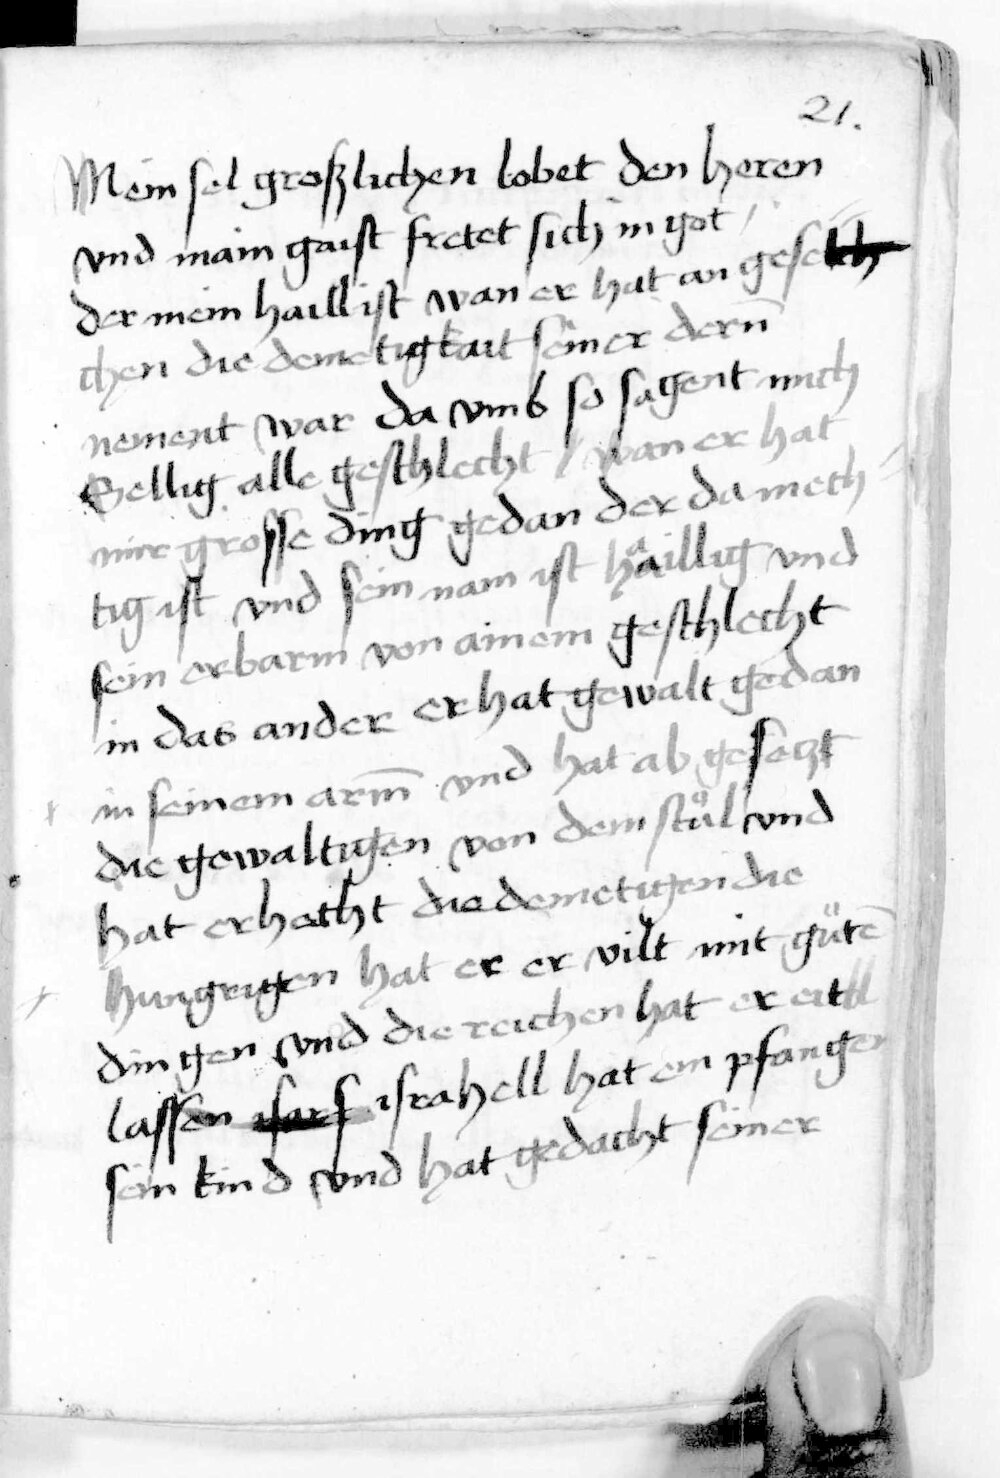 21.
Mein sel großlichen lobet den heren
vnd main gaist fretet sich in got /
der mein haill ist wan er hat an gese
chen die demetigkait seiner dern̄
nement war da vmb so sagent mich
Sellig alle geschlecht / wan er hat
mir grosse ding gedan der da mech
tig ist vnd sein nam ist haͤillig vnd
sein erbarm von ainem geschlecht
in das ander er hat gewalt gedan
in seinem arm̄ vnd hat ab gesetzt
die gewaltigen von dem stuͦl vnd
hat erhecht die demetigen die
hungrigen hat er er vilt mit guͤtē
dingen vnd die reichen hat er eitll
lassen israhell hat em pfangen
sein kind vnd hat gedacht seiner